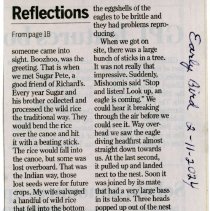 Reflections
From page 1B
someone came into
sight. Boozhoo, was the
greeting. That is when
we met Sugar Pete, a
good friend of Richard's.
Every year Sugar and
his brother collected and
processed the wild rice
the traditional way. They
would bend the rice
over the canoe and hit
it with a beating stick.
The rice would fall into
the canoe, but some was
lost overboard. That was
the Indian way, those
lost seeds were for future
crops. My wife salvaged
a handful of wild rice
that fell into the bottom
the eggshells of the
eagles to be brittle and
they had problems repro-
ducing.
When we got on
site, there was a large
bunch of sticks in a tree.
It was not really that
impressive. Suddenly,
Mishoomis said "Stop
and listen! Look up, an
eagle is coming." We
could hear it breaking
through the air before we
could see it. Way over-
head we saw the eagle
diving headfirst almost
straight down towards
us. At the last second,
it pulled up and landed
next to the nest. Soon it
was joined by its mate
that had a very large bass
in its talons. Three heads
popped up out of the nest
Early Bird 2-11-2024